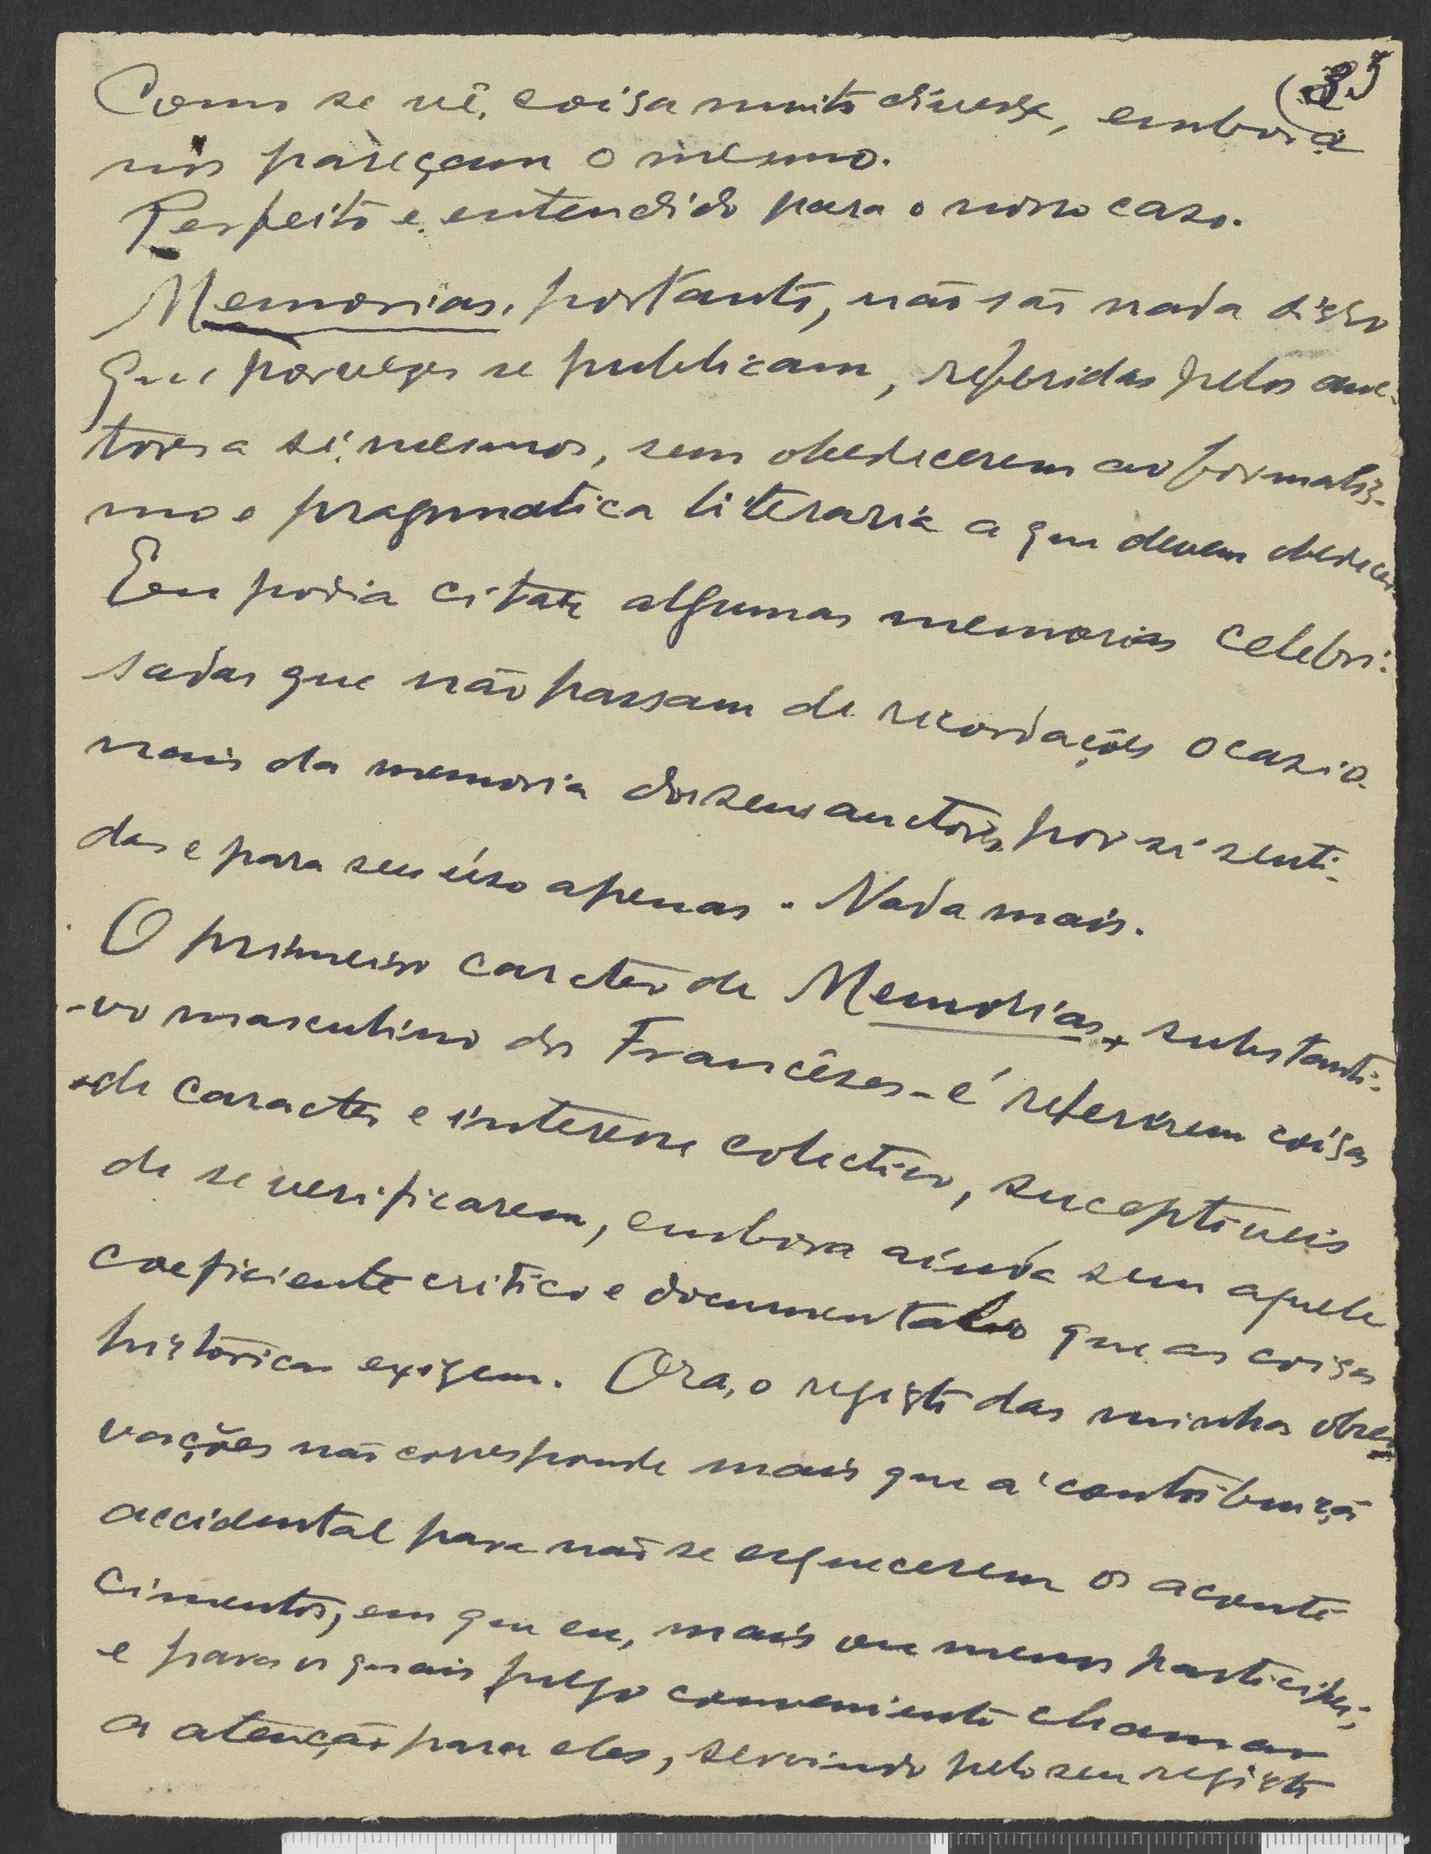 (35
Como se vê, coisa muito diversa, embora
nos pareçam o mesmo.
Perfeito e entendido para o nosso caso.
Memorias, portanto, não são nada disso
que por vezes se publicam, referidas pelos auc-
tores a si mesmos, sem obedecerem ao formalis-
mo e pragmatica literaria a que devem obedecer.
Eu podia citar algumas memorias celebri-
sadas que não passam de recordações ocasio-
nais da memoria dos seus auctores, por si senti-
das e para seu úso apenas. Nada mais.
O primeiro caracter de Memorias, substanti-
-vo masculino dos Francêses - é referirem coisas
de caracter e interesse colectivo, suceptiveis
de se verificarem, embora ainda sem aquele
coeficiente critico e documental que as coisas
históricas exigem. Ora, o registo das minhas obser-
vações não corresponde mais que a contribuiçã
accidental para não se esquecerem os aconte
cimentos, em que eu, mais ou menos participei,
e para os quais julgo conveniente chamar
a atenção para eles, servindo pelo seu registo